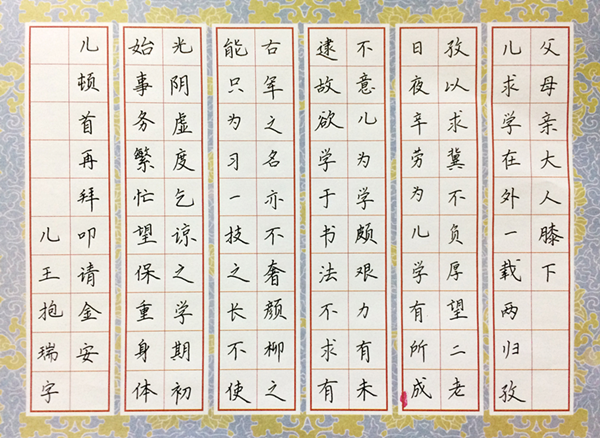 父母亲大人膝下
儿求学在外一载两归孜
孜以求冀不负厚望二老
日夜辛劳为儿学有所成
不意儿为学颇艰力有未
逮故欲学于书法不求有
右军之名亦不奢颜柳之
能只为习一技之长不使
光阴虚度乞谅之学期初
始事务繁忙望保重身体
儿顿首再拜叩请金安
儿王抱瑞字